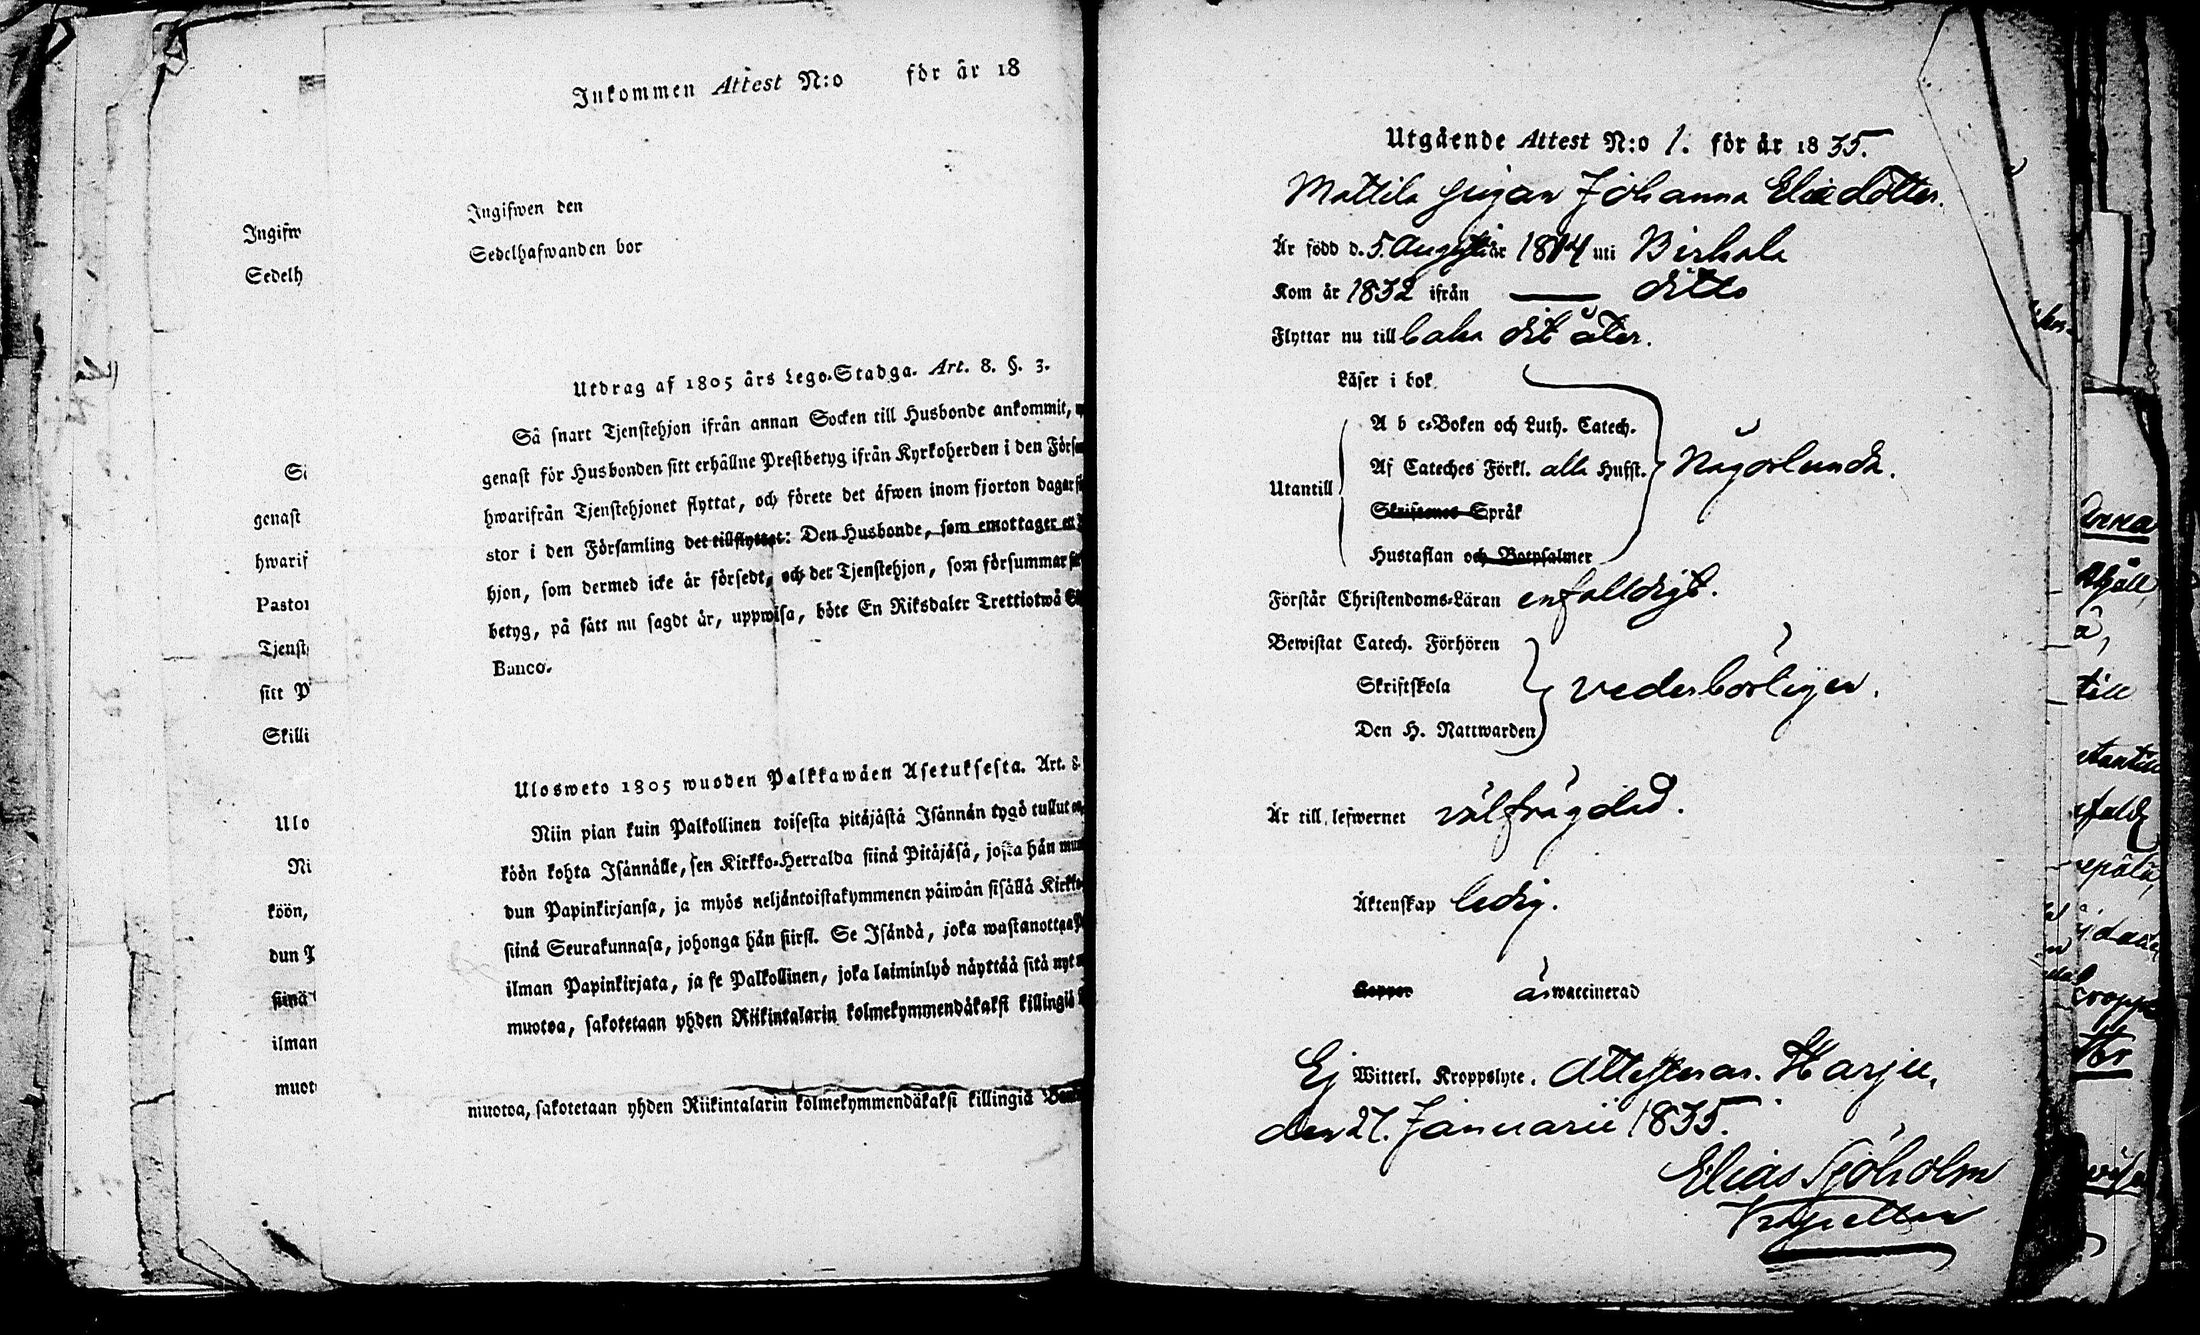 Inkommen Attest N:o för år 18
Ingifwen den
Sedelhafwanden bor
Utdrag af 1805 års Lego-Stadga. Art. 8. §. 3.
Så snart Tjenstehjon ifrån annan Socken till Husbonde ankommit,
genast för Husbonden sitt erhållne Prestbetyg ifrån Kyrkoherden i den
hwarifrån Tjenstehjonet flyttat, och förete det äfwen inom fjorton dagar
stor i den Församling det tillflyttat: Den Husbonde, som emottager
hjon, som dermed icke är försedt, och det Tjenstehjon, som försummar
betyg, på sätt nu sagdt är, uppwisa, böte En Riksdaler Trettiotwå
Banco.
Ulosweto 1805 wuoden Palkkawäen Asetuksesta. Art. 8.
Niin pian kuin Palkollinen toisesta pitäjästä Isännän tygö tullut
köön kohta Isännälle, sen Kirkko-Herralda siinä Pitäjäsä, josta hän
dun Papinkirjansa, ja myös neljäntoistakymmenen päiwän sisällä
siinä Seurakunnasa, johonga hän siirsi. Se Isändä, joka wastanottaa
ilman Papinkirjata, ja se Palkollinen, joka laiminlyö näyttää sitä nyt
muotoa, sakotetaan yhden Riikintalarin kolmekymmendäkaksi killingiä
muotoa, sakotetaan yhden Riikintalarin kolmekymmendäkaksi killingiä
Ingifw
Sedelh
genast
hwarif
Pastor
Tjenst
sitt P
Skilli
Ulo
Ni
köön,
dun P
siinä
ilman
muot
Utgående Attest N:o 1. för år 1835.
Mattila pigan Johanna Eliædotter.
Är född d. 5. Augusti år 1814 uti Birkala
Kom år 1832 ifrån — ditto
Flyttar nu till baka dit åter.
Läser i bok
A b c-Boken och Luth. Catech.
Af Cateches Förkl. alla Hufst. Någorlunda.
Utantill
Skriftenes Språk
Hustaflan och Botpsalmer
Förstår Christendoms-Läran enfalldigt.
Bewistat Catech. Förhören
Skriftskola vederbörligen.
Den H. Nattwarden
Är till lefwernet välfrägdad.
Äktenskap ledig.
Koppor är waccinerad
Ej Witterl. Kroppslyte. Attesteras. Harju,
den 27. Januarii 1835.
Elias Sjöholm
Anna
till